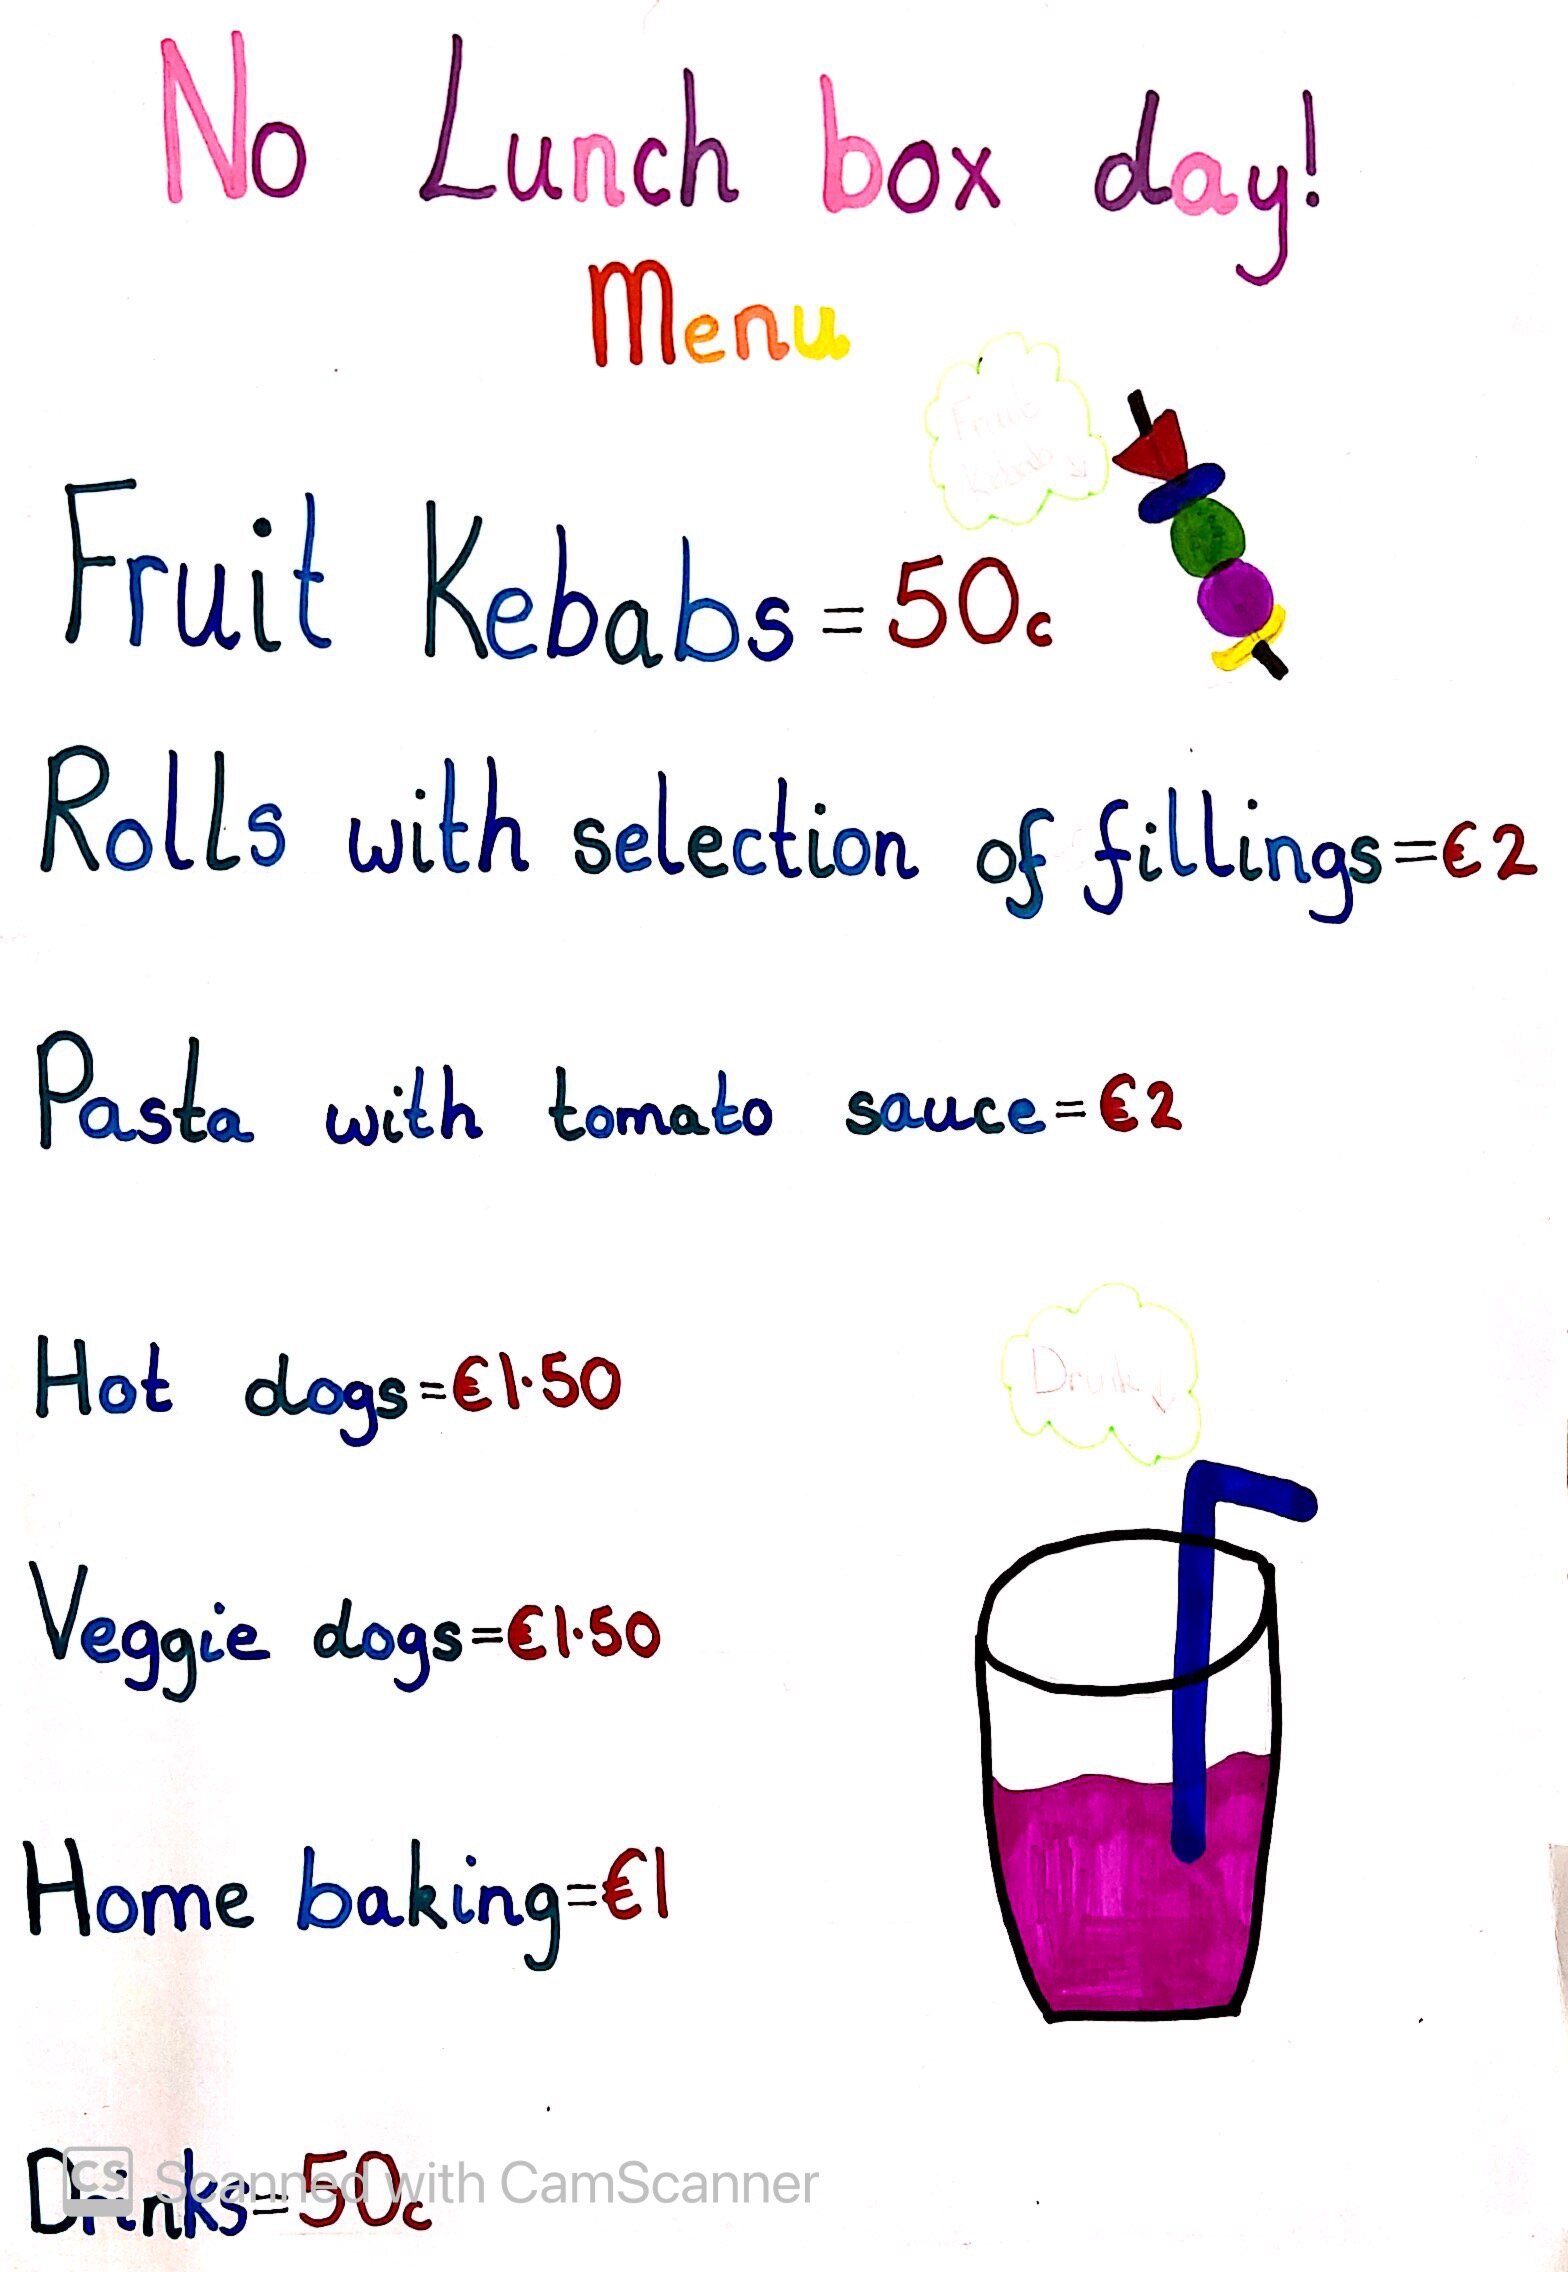 No Lunch box day!
Menu
Fruit
Kebab
Fruit Kebabs = 50c
Rolls with selection of fillings = €2
Pasta with tomato sauce = €2
Hot dogs = €1.50
Drink
Veggie dogs = €1.50
Home baking = €1
Drinks = 50c
CS Scanned with CamScanner